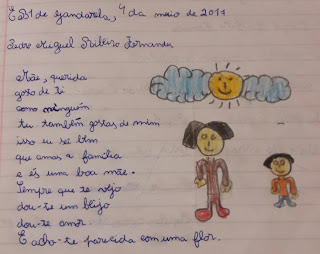 EB1 de Gandarela, 4 de maio de 2017
Pedro Miguel Ribeiro Fernandes
Mãe, querida
gosto de ti
como ninguém
tu também gostas de mim
isso eu sei bem
que amas a família
e és uma boa mãe.
Sempre que te vejo
dou-te um beijo
dou-te amor.
E acho-te parecida com uma flor.